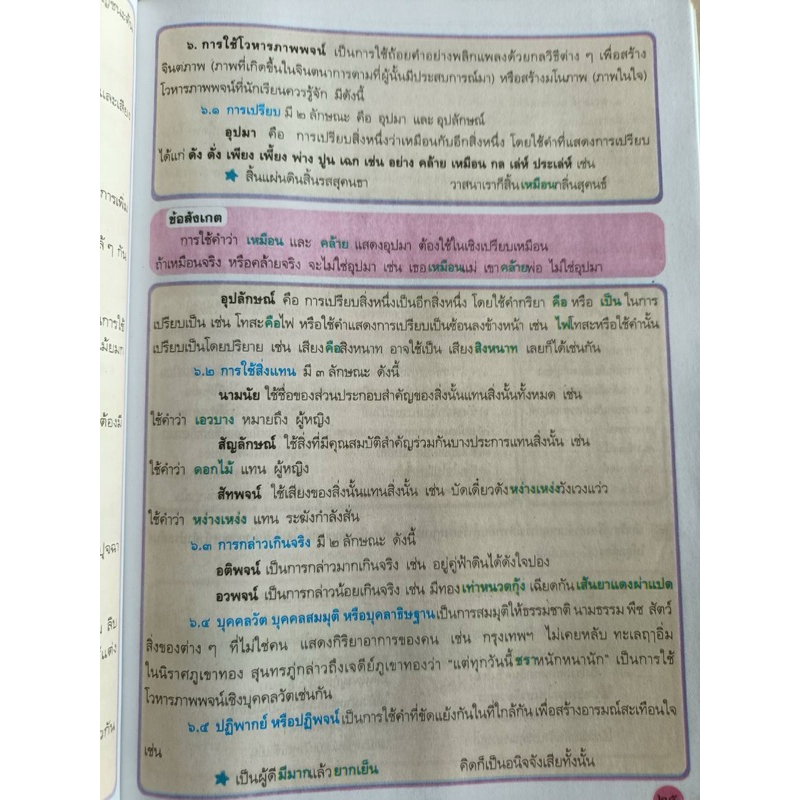 ๖. การใช้โวหารภาพพจน์ เป็นการใช้ถ้อยคำอย่างพลิกแพลงด้วยกลวิธีต่าง ๆ เพื่อสร้าง
จินตภาพ (ภาพที่เกิดขึ้นในจินตนาการตามที่ผู้นั้นมีประสบการณ์มา) หรือสร้างมโนภาพ (ภาพในใจ)
โวหารภาพพจน์ที่นักเรียนควรรู้จัก มีดังนี้
๖.๑ การเปรียบ มี ๒ ลักษณะ คือ อุปมา และ อุปลักษณ์
อุปมา คือ การเปรียบสิ่งหนึ่งว่าเหมือนกับอีกสิ่งหนึ่ง โดยใช้คำที่แสดงการเปรียบ
ได้แก่ ดัง ดั่ง เพียง เพี้ยง พ่าง ปูน เฉก เช่น อย่าง คล้าย เหมือน กล เล่ห์ ประเล่ห์ เช่น
★ สิ้นแผ่นดินสิ้นรสสุคนธา วาสนาเราก็สิ้นเหมือนกลิ่นสุคนธ์
ข้อสังเกต
การใช้คำว่า เหมือน และ คล้าย แสดงอุปมา ต้องใช้ในเชิงเปรียบเหมือน
ถ้าเหมือนจริง หรือคล้ายจริง จะไม่ใช่อุปมา เช่น เธอเหมือนแม่ เขาคล้ายพ่อ ไม่ใช่อุปมา
อุปลักษณ์ คือ การเปรียบสิ่งหนึ่งเป็นอีกสิ่งหนึ่ง โดยใช้คำกริยา คือ หรือ เป็น ในการ
เปรียบเป็น เช่น โทสะคือไฟ หรือใช้คำแสดงการเปรียบเป็นซ้อนลงข้างหน้า เช่น ไฟโทสะหรือใช้คำนั้น
เปรียบเป็นโดยปริยาย เช่น เสียงคือสิงหนาท อาจใช้เป็น เสียงสิงหนาท เลยก็ได้เช่นกัน
๖.๒ การใช้สิ่งแทน มี ๓ ลักษณะ ดังนี้
นามนัย ใช้ชื่อของส่วนประกอบสำคัญของสิ่งนั้นแทนสิ่งนั้นทั้งหมด เช่น
ใช้คำว่า เอวบาง หมายถึง ผู้หญิง
สัญลักษณ์ ใช้สิ่งที่มีคุณสมบัติสำคัญร่วมกันบางประการแทนสิ่งนั้น เช่น
ใช้คำว่า ดอกไม้ แทน ผู้หญิง
สัทพจน์ ใช้เสียงของสิ่งนั้นแทนสิ่งนั้น เช่น บัดเดี๋ยวดังหง่างเหง่งวังเวงแว่ว
ใช้คำว่า หง่างเหง่ง แทน ระฆังกำลังสั่น
๖.๓ การกล่าวเกินจริง มี ๒ ลักษณะ ดังนี้
อติพจน์ เป็นการกล่าวมากเกินจริง เช่น อยู่คู่ฟ้าดินได้ดังใจปอง
อวพจน์ เป็นการกล่าวน้อยเกินจริง เช่น มีทองเท่าหนวดกุ้ง เฉียดกันเส้นยาแดงผ่าแปด
๖.๔ บุคคลวัต บุคคลสมมุติ หรือบุคลาธิษฐานเป็นการสมมุติให้ธรรมชาติ นามธรรม พืช สัตว์
สิ่งของต่าง ๆ ที่ไม่ใช่คน แสดงกิริยาอาการของคน เช่น กรุงเทพฯ ไม่เคยหลับ ทะเลฤๅอิ่ม
ในนิราศภูเขาทอง สุนทรภู่กล่าวถึงเจดีย์ภูเขาทองว่า "แต่ทุกวันนี้ชราหนักหนานัก" เป็นการใช้
โวหารภาพพจน์เชิงบุคคลวัตเช่นกัน
๖.๕ ปฏิพากย์ หรือปฏิพจน์ เป็นการใช้คำที่ขัดแย้งกันในที่ใกล้กัน เพื่อสร้างอารมณ์สะเทือนใจ
เช่น
★ เป็นผู้ดีมีมากแล้วยากเย็น คิดก็เป็นอนิจจังเสียทั้งนั้น